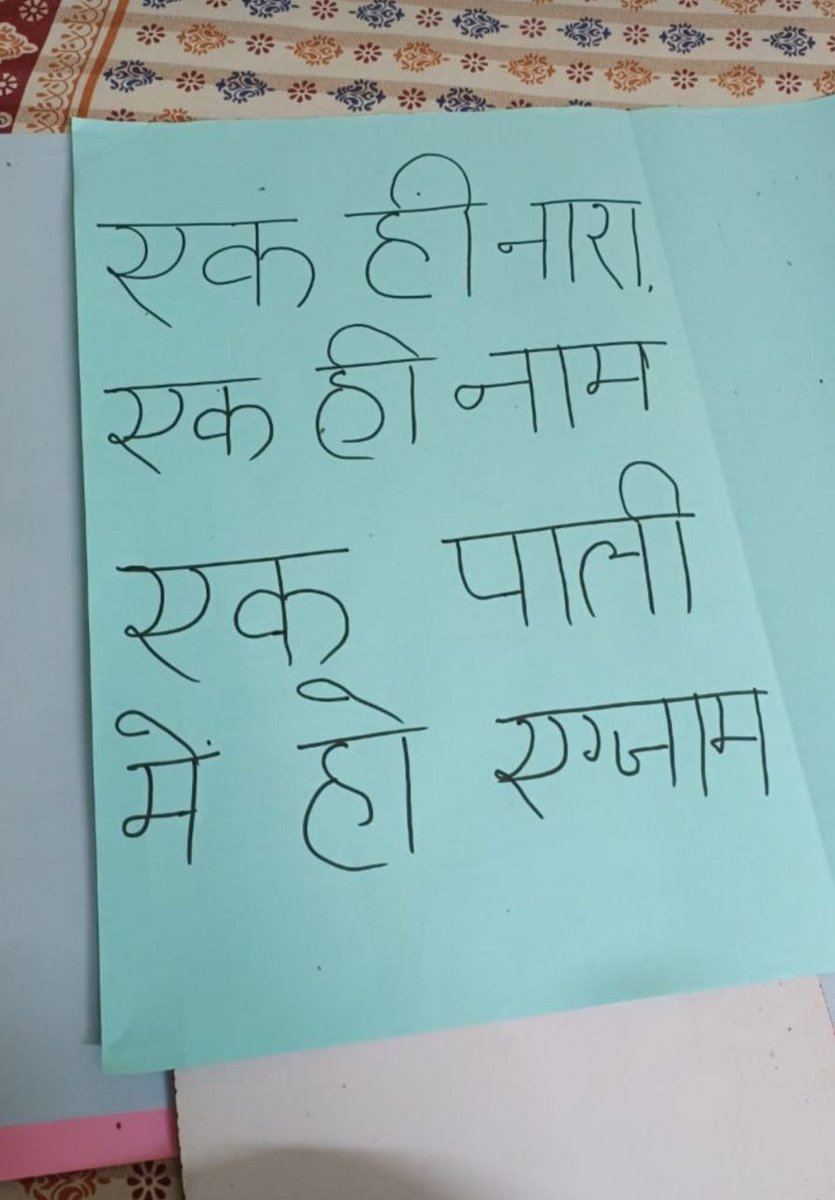 एक ही नारा,
एक ही नाम
एक पाली
में हो एग्जाम